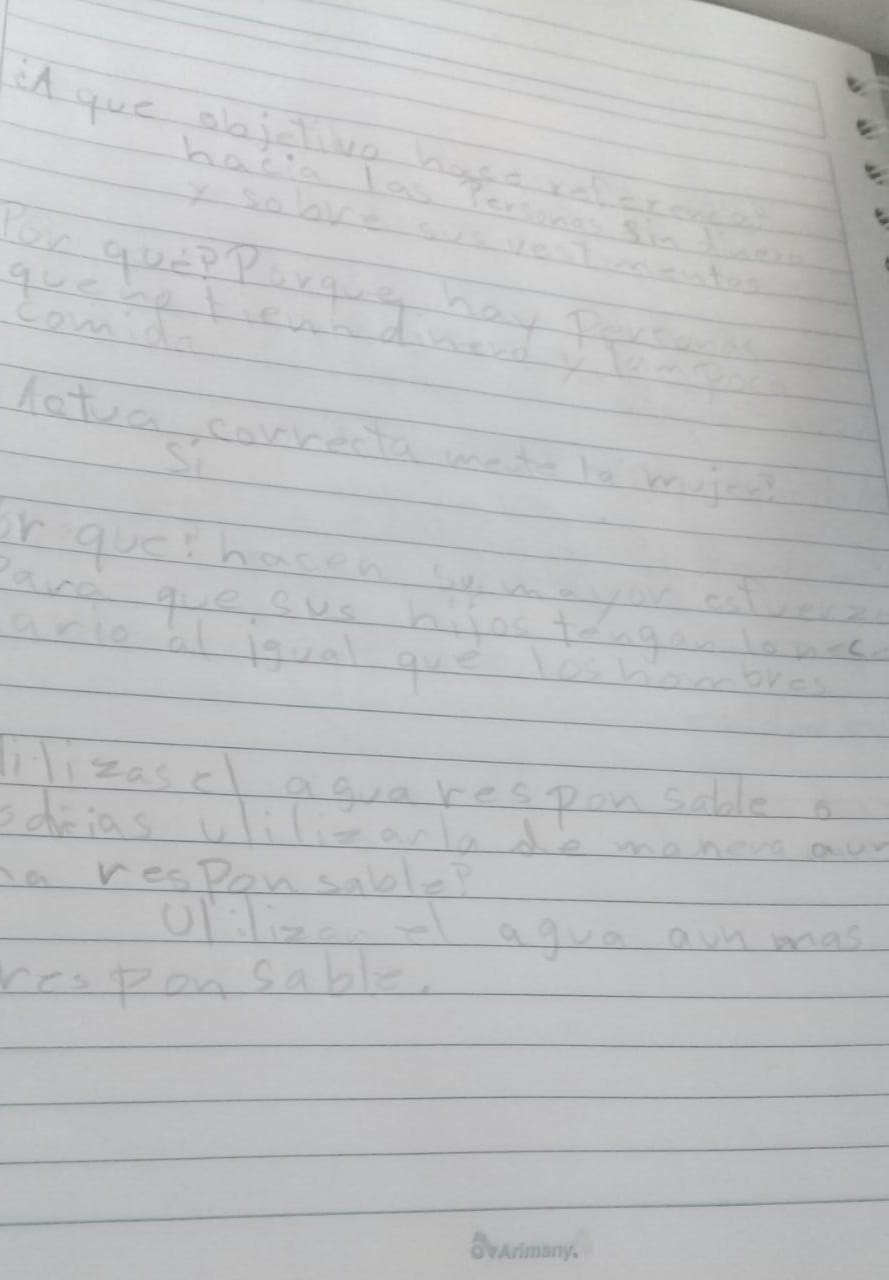 ¿A que objetivo hace referencia?
hacia las Personas sin dinero
y sobre sus vestimentas
Por qué? Porque hay Personas
que no tienn dinero y tampoco
comida
Actua correcta mente la mujer?
Si
or que? hacen su mayor esfuerz
Para que sus hijos tengan lo nece
ario al igual que los hombres
tilizas el agua responsable o
odrias utilizarla de manera aun
a responsable?
Utilizar el agua aun mas
responsable.
Arimany.